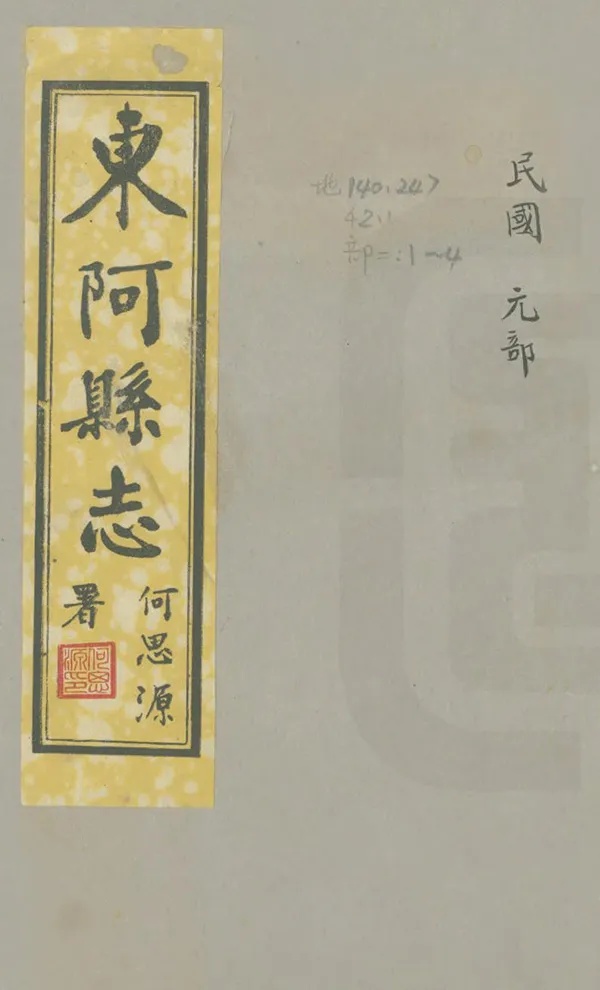 民國 元部
地140.247
42.1
部二:1~4
東阿縣志
何思源
署
何思源印